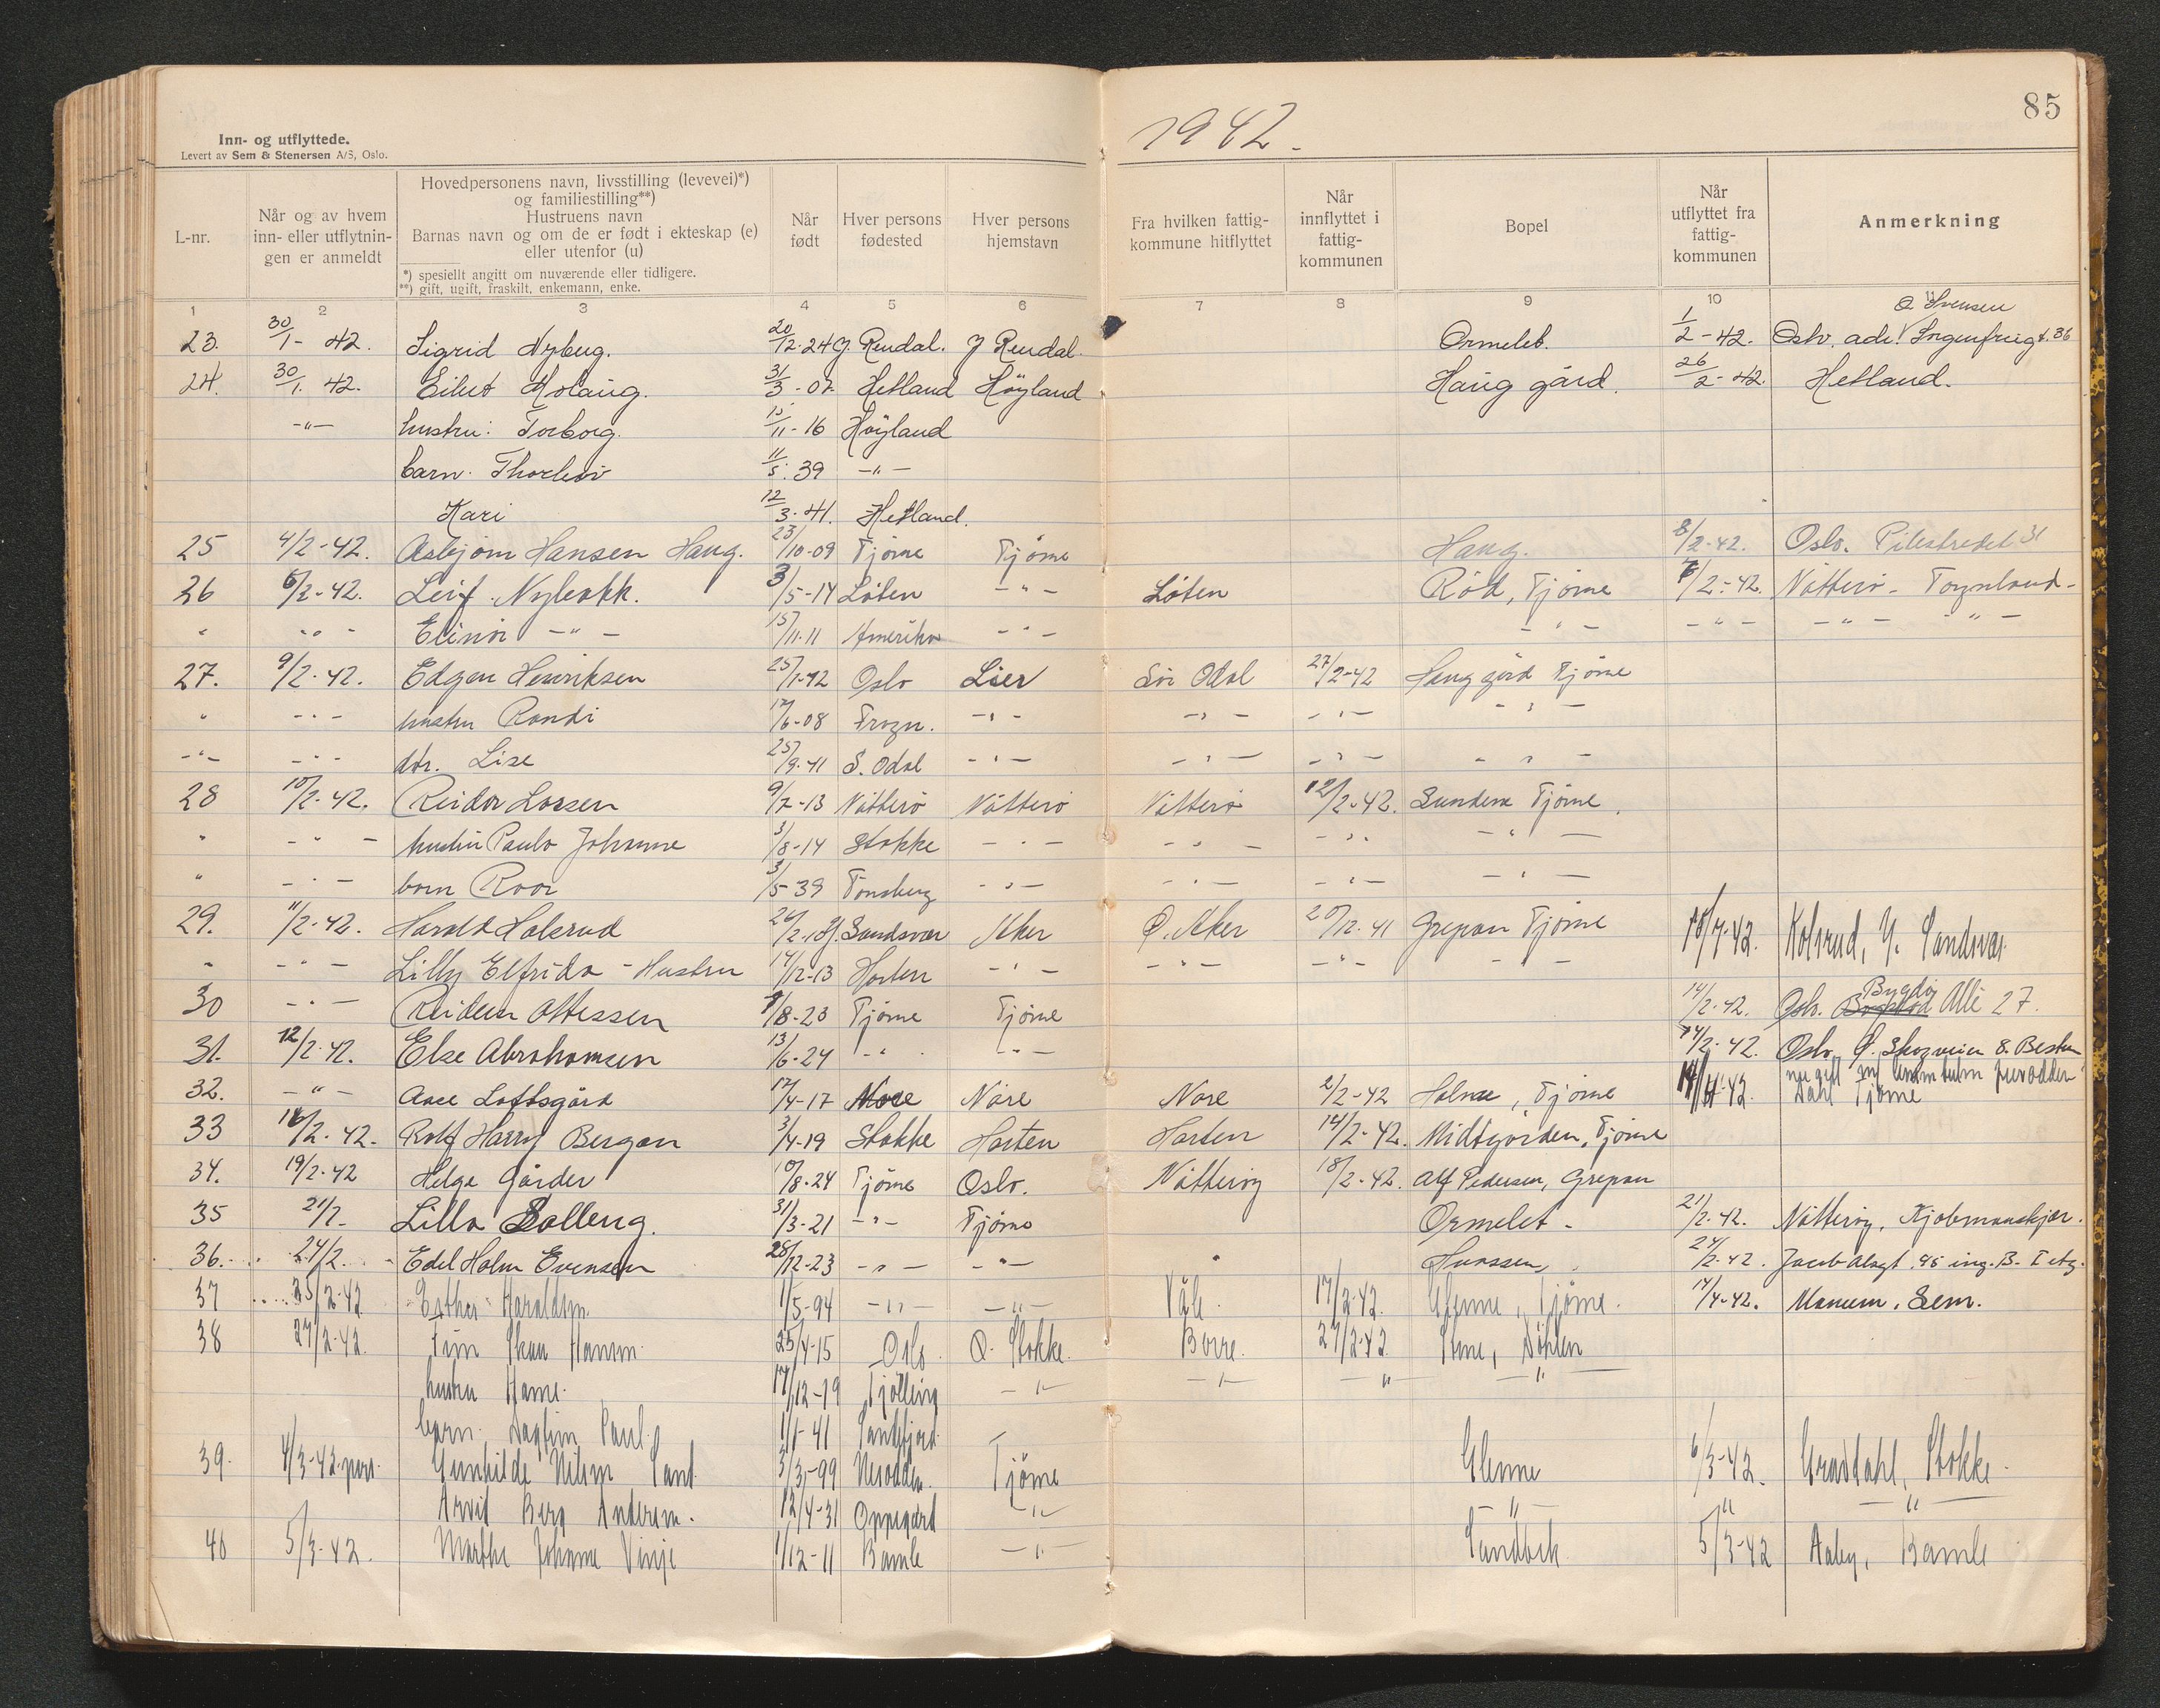 85
1942.
Inn- og utflyttede.
Levert av Sem & Stenersen A/S, Oslo.
L-nr. | Når og av hvem inn- eller utflytningen er anmeldt | Hovedpersonens navn, livsstilling (levevei)*) og familiestilling**) Hustruens navn Barnas navn og om de er født i ekteskap (e) eller utenfor (u) *) spesiellt angitt om nuværende eller tidligere. **) gift, ugift, fraskilt, enkemann, enke. | Når født | Hver persons fødested | Hver persons hjemstavn | Fra hvilken fattigkommune hitflyttet | Når innflyttet i fattigkommunen | Bopel | Når utflyttet fra fattigkommunen | Anmerkning
1 2 3 4 5 6 7 8 9 10
23. 30/1- 42. Sigrid Nyberg. 20/12-24 Y. Rendal. Y Rendal. Ormelet. 1/2-42. Oslo. adr. Sorgenfrigt. 36
24. 30/1. 42. Eilert Molaug. 31/3-02 Hetland Høyland Haug gård. 26/2-42. Hetland.
-"- hustru: Torborg. 15/11-16 Høyland
barn. Thorleiv 11/5. 39 -"-
Kari 12/3-41. Hetland.
25 4/2-42. Asbjørn Hansen Haug. 23/10-09 Tjøme Tjøme Haug. 8/2-42. Oslo. Pilestredet 31
26 6/2-42. Leif Nybakk. 3/5-14 Løten -"- Løten Rød, Tjøme 7/2-42. Nøtterø - Tognland-
" -"- Elinor -"- 15/11-11 Amerika -"- -"- -"- -"- -"-
27. 9/2-42. Edgar Henriksen 25/1-12 Oslo Lier Sør Odal 27/2-42 Haug gård Tjøme
" -"- hustru Randi 12/6-08 Frogn. -"- -"- -"- -"-
-"- -"- dtr. Lise 25/9-41 S. Odal -"- -"- -"- -"-
28 10/2-42. Reidar Larsen 9/7-13 Nøtterø Nøtterø Nøtterø 12/2-42. Sundene Tjøme.
" -"- hustru Paula Johanne 3/8-14 Stokke -"- -"- -"- -"-
" -"- barn Roar 3/5-39 Tønsberg -"- -"- -"- -"-
29. 11/2-42. Harald Kolsrud 26/2-18 Y. Sandsvær Aker Ø. Aker 20/12-41 Grepan Tjøme 15/7-42. Kolsrud, Y. Sandsvær
" -"- Lilly Elfrida - Hustru 14/12-13 Horten -"- -"- -"- -"-
30 -"- Reidun Ottessen 8/8-23 Tjøme Tjøme 14/2-42. Oslo. Bygdø Allé 27.
31. 12/2-42. Else Abrahamsen 13/6-24 -"- -"- 14/2-42. Oslo, Ø. Skogveien 8. Bestum
32. -"- Aase Loftsgård 17/4-17 Nore Nore Nore 2/2-42 Holmen, Tjøme 14/4-42. Dahl Tjøme
33 16/2-42. Rolf Harry Bergan 3/4-19 Stokke Horten Horten 14/2-42. Midtgården, Tjøme
34. 19/2-42 Helge Gårder 10/8-24 Tjøme Oslo. Nøtterøy 18/2-42. Alf Pedersen, Grepan
35 21/2- Lilla Solleng. 31/3-21 -"- Tjøme Ormelet - 21/2-42. Nøtterøy, Kjøbmannskjær.
36. 24/2. Edel Holm Evensen 28/12-23 -"- -"- " 24/2-42. Jacob Aalsgt. 48 ing. B. I etg.
37 25/2-42 Esther Haraldsen 1/5-94 -"- -"- Våle. 17/2-42. Glenne, Tjøme. 14/4-42. Manum, Sem.
38 27/2-42. Finn Skau Hansen. 25/4-15 Oslo Q. Stokke. Borre. 27/2-42.
hustru Hanne. 17/12-19 Tjølling -"- -"- -"- -"-
barn. Dagfinn Paul. 1/1-41 Sandefjord.
39. 4/3-42 pers. Gunhilde Nilsen Sand. 3/3-99 Nesodden. Tjøme Glenne 6/3-42. Stokke.
Arvid Berg Andersen. 12/4-31 Oppegård -"- -"- " -"-
40 5/3-42. Marthe Johanne Vinje 1/12-11 Bamle -"- Sundbek 5/3-42 Aaby, Bamle